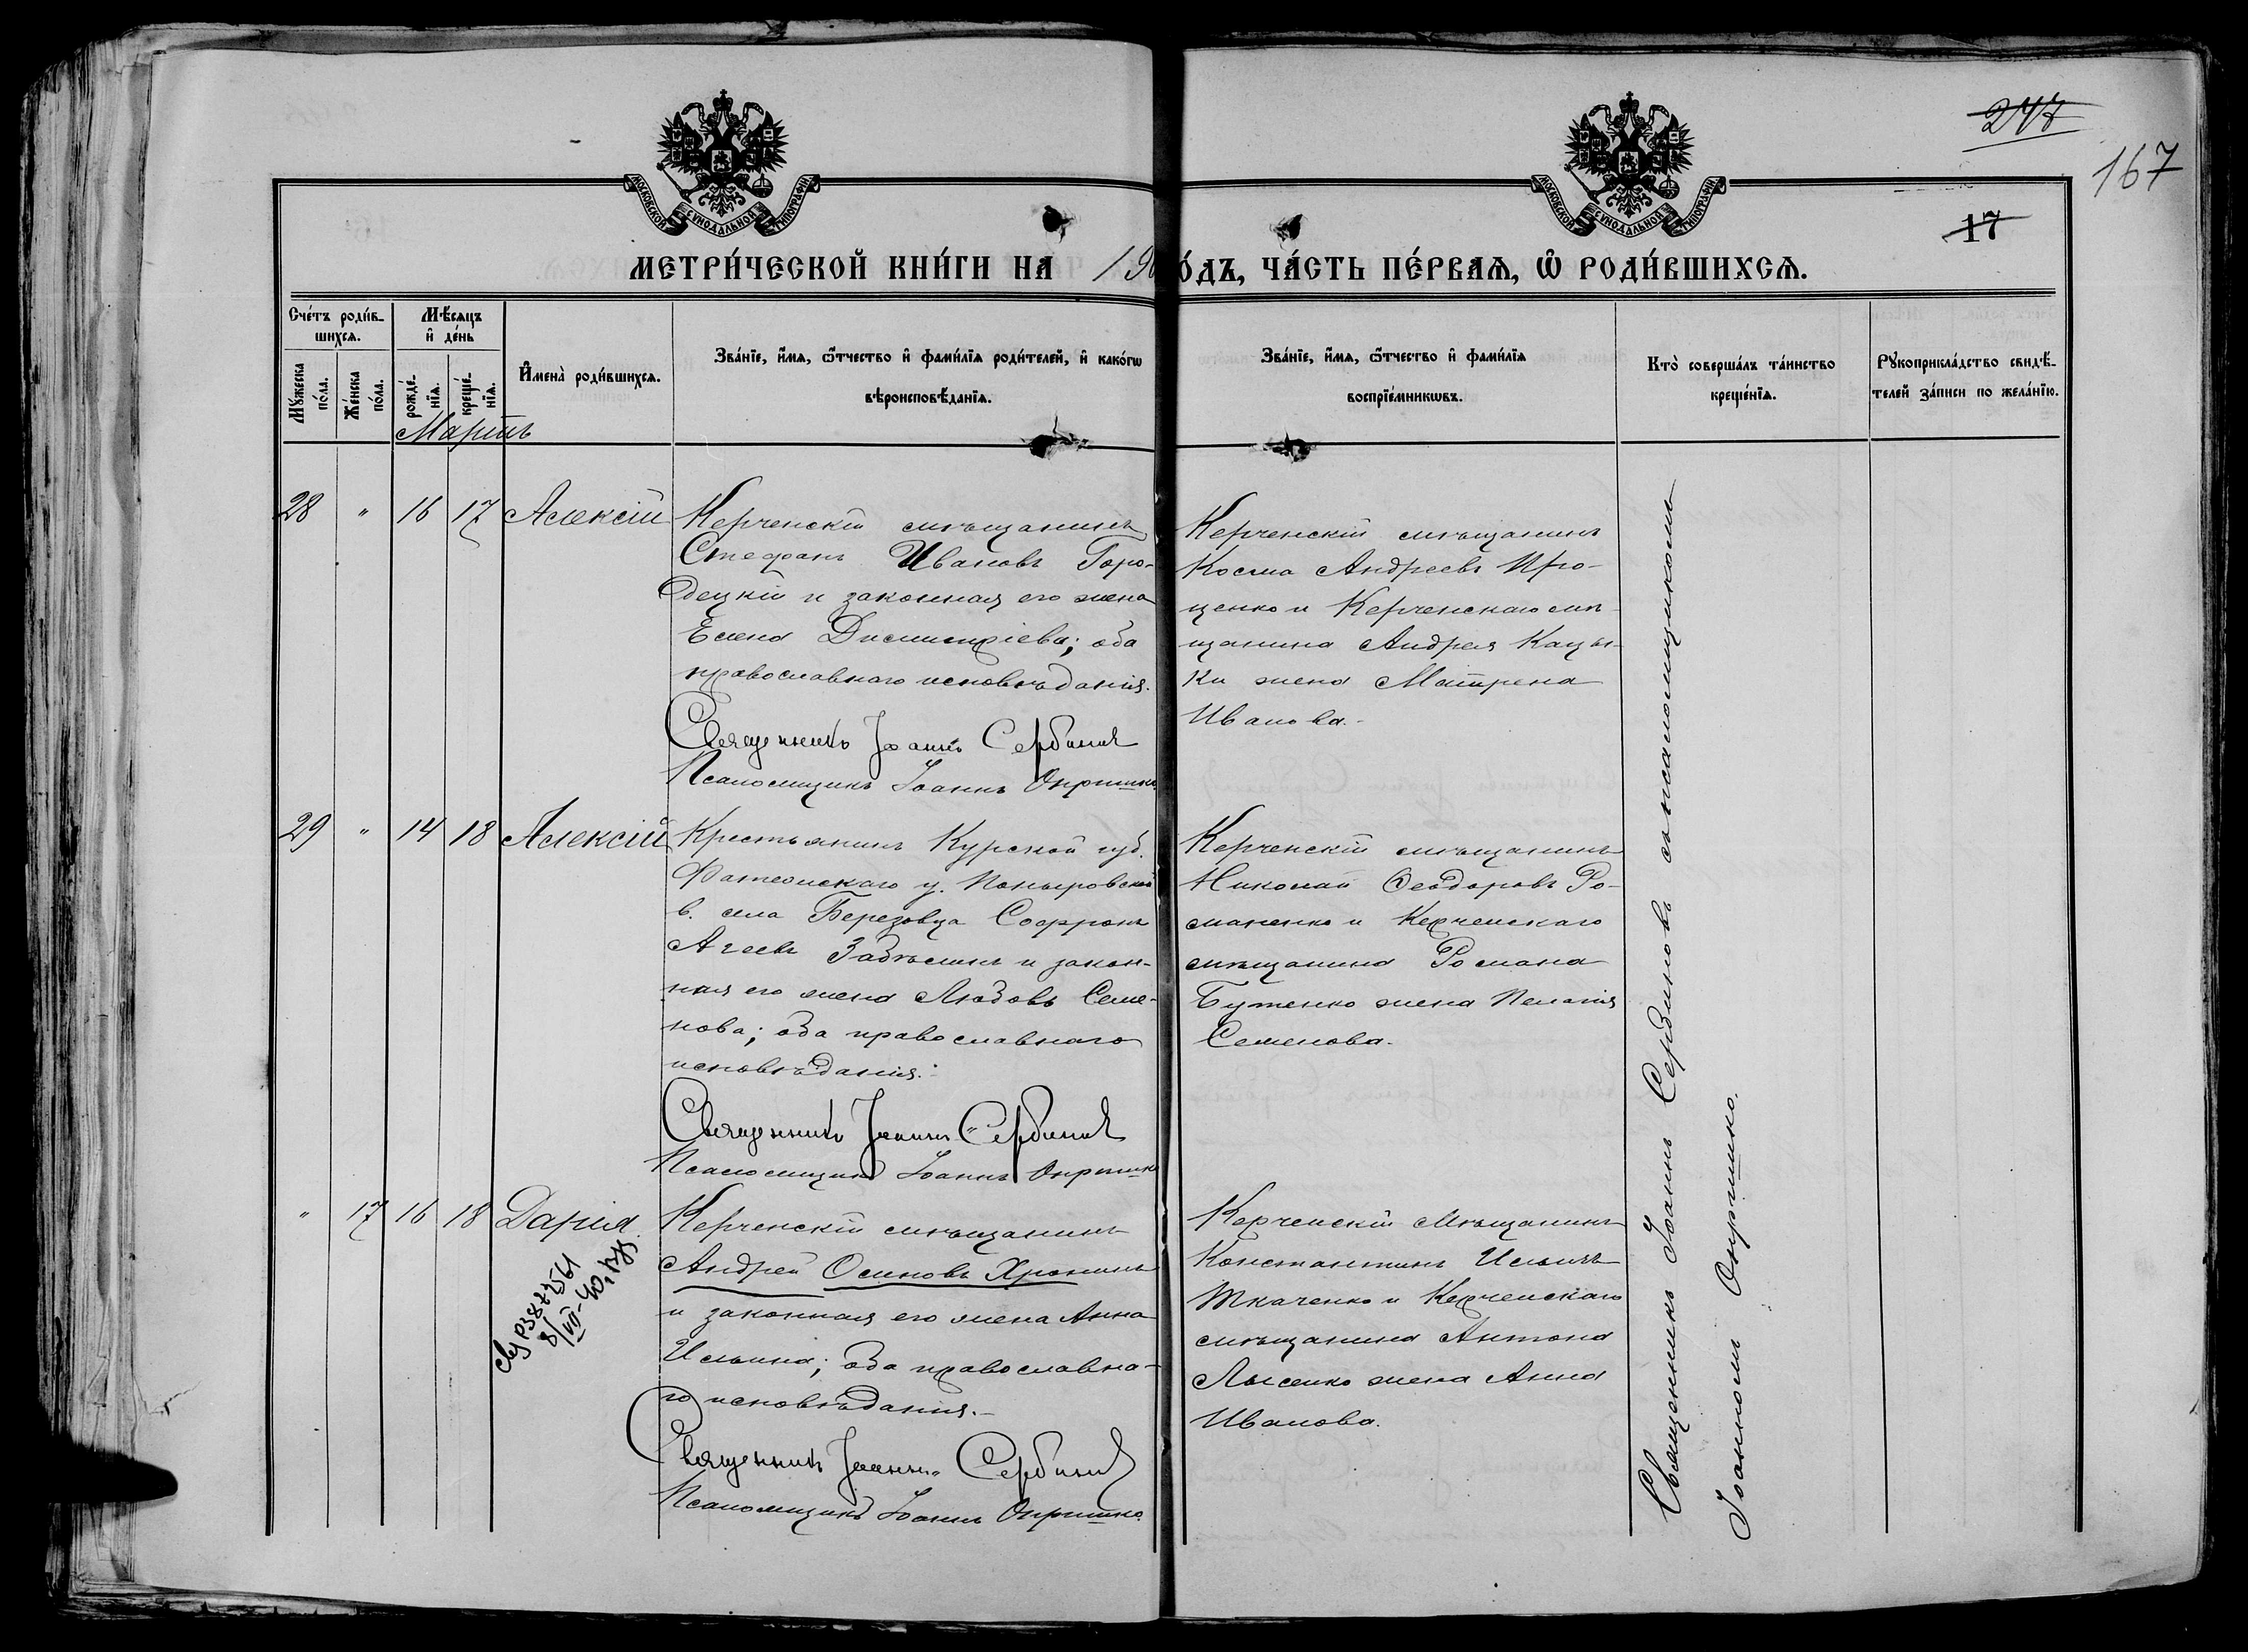 247
167
17
МОСКОВСКОЙ СѴНОДАЛЬНОЙ ТИПОГРАФІИ
МОСКОВСКОЙ СѴНОДАЛЬНОЙ ТИПОГРАФІИ
МЕТРИ́ЧЕСКОЙ КНИ́ГИ НА 190
О́ДЪ, ЧА́СТЬ ПЕ́РВАѦ, Ѡ҆ РОДИ́ВШИХСѦ.
Сче́тъ роди́в-
шихсѧ.
Мꙋ́жеска
по́ла.
Же́нска
по́ла.
Мѣ́сѧцъ
и҆ де́нь
рожде́-
нїѧ.
креще́-
нїѧ.
И҆мена̀ роди́вшихсѧ.
Зва́нїе, и҆́мѧ, ѻ҆́тчество и҆ фами́лїѧ роди́телей, и҆ како́гѡ
вѣроисповѣ́данїѧ.
Зва́нїе, и҆́мѧ, ѻ҆́тчество и҆ фами́лїѧ
воспрїе́мникѡвъ.
Кто̀ соверша́лъ та́инство
креще́нїѧ.
Рꙋкоприкла́дство свидѣ́-
телей за́писи по жела́нїю.
Мартъ
28 " 16 17 Алексій
Керченскій мѣщанинъ
Стефанъ Ивановъ Горо-
децкій и законная его жена
Елена Димитріева; оба
православнаго исповѣданія.
Священникъ Іоаннъ Сербиновъ
Псаломщикъ Іоаннъ Опришко
Керченскій мѣщанинъ
Косма Андреевъ Про-
ценко и Керченскаго мѣ-
щанина Андрея Кацы-
ки жена Матрена
Иванова.
29 " 14 18 Алексій
Крестьянинъ Курской губ.
Фатежскаго у. Поныровской
в. села Березовца Софронъ
Агеевъ Забѣлинъ и закон-
ная его жена Любовь Семе-
нова; оба православнаго
исповѣданія.
Священникъ Іоаннъ Сербиновъ
Псаломщикъ Іоаннъ Опришко
Керченскій мѣщанинъ
Николай Ѳеодоровъ Ро-
маненко и Керченскаго
мѣщанина Романа
Бутенко жена Пелагія
Семенова.
" 17 16 18 Дарія.
8/VII-40
Керченскій мѣщанинъ
Андрей Осиповъ Хронинъ
и законная его жена Анна
Ильина; оба православна-
го исповѣданія.
Священникъ Іоаннъ Сербиновъ
Псаломщикъ Іоаннъ Опришко.
Керченскій мѣщанинъ
Константинъ Ильичъ
Ткаченко и Керченскаго
мѣщанина Антона
Лысенко жена Анна
Иванова.
Священникъ Іоаннъ Сербиновъ съ псаломщикомъ
Іоанномъ Опришко.